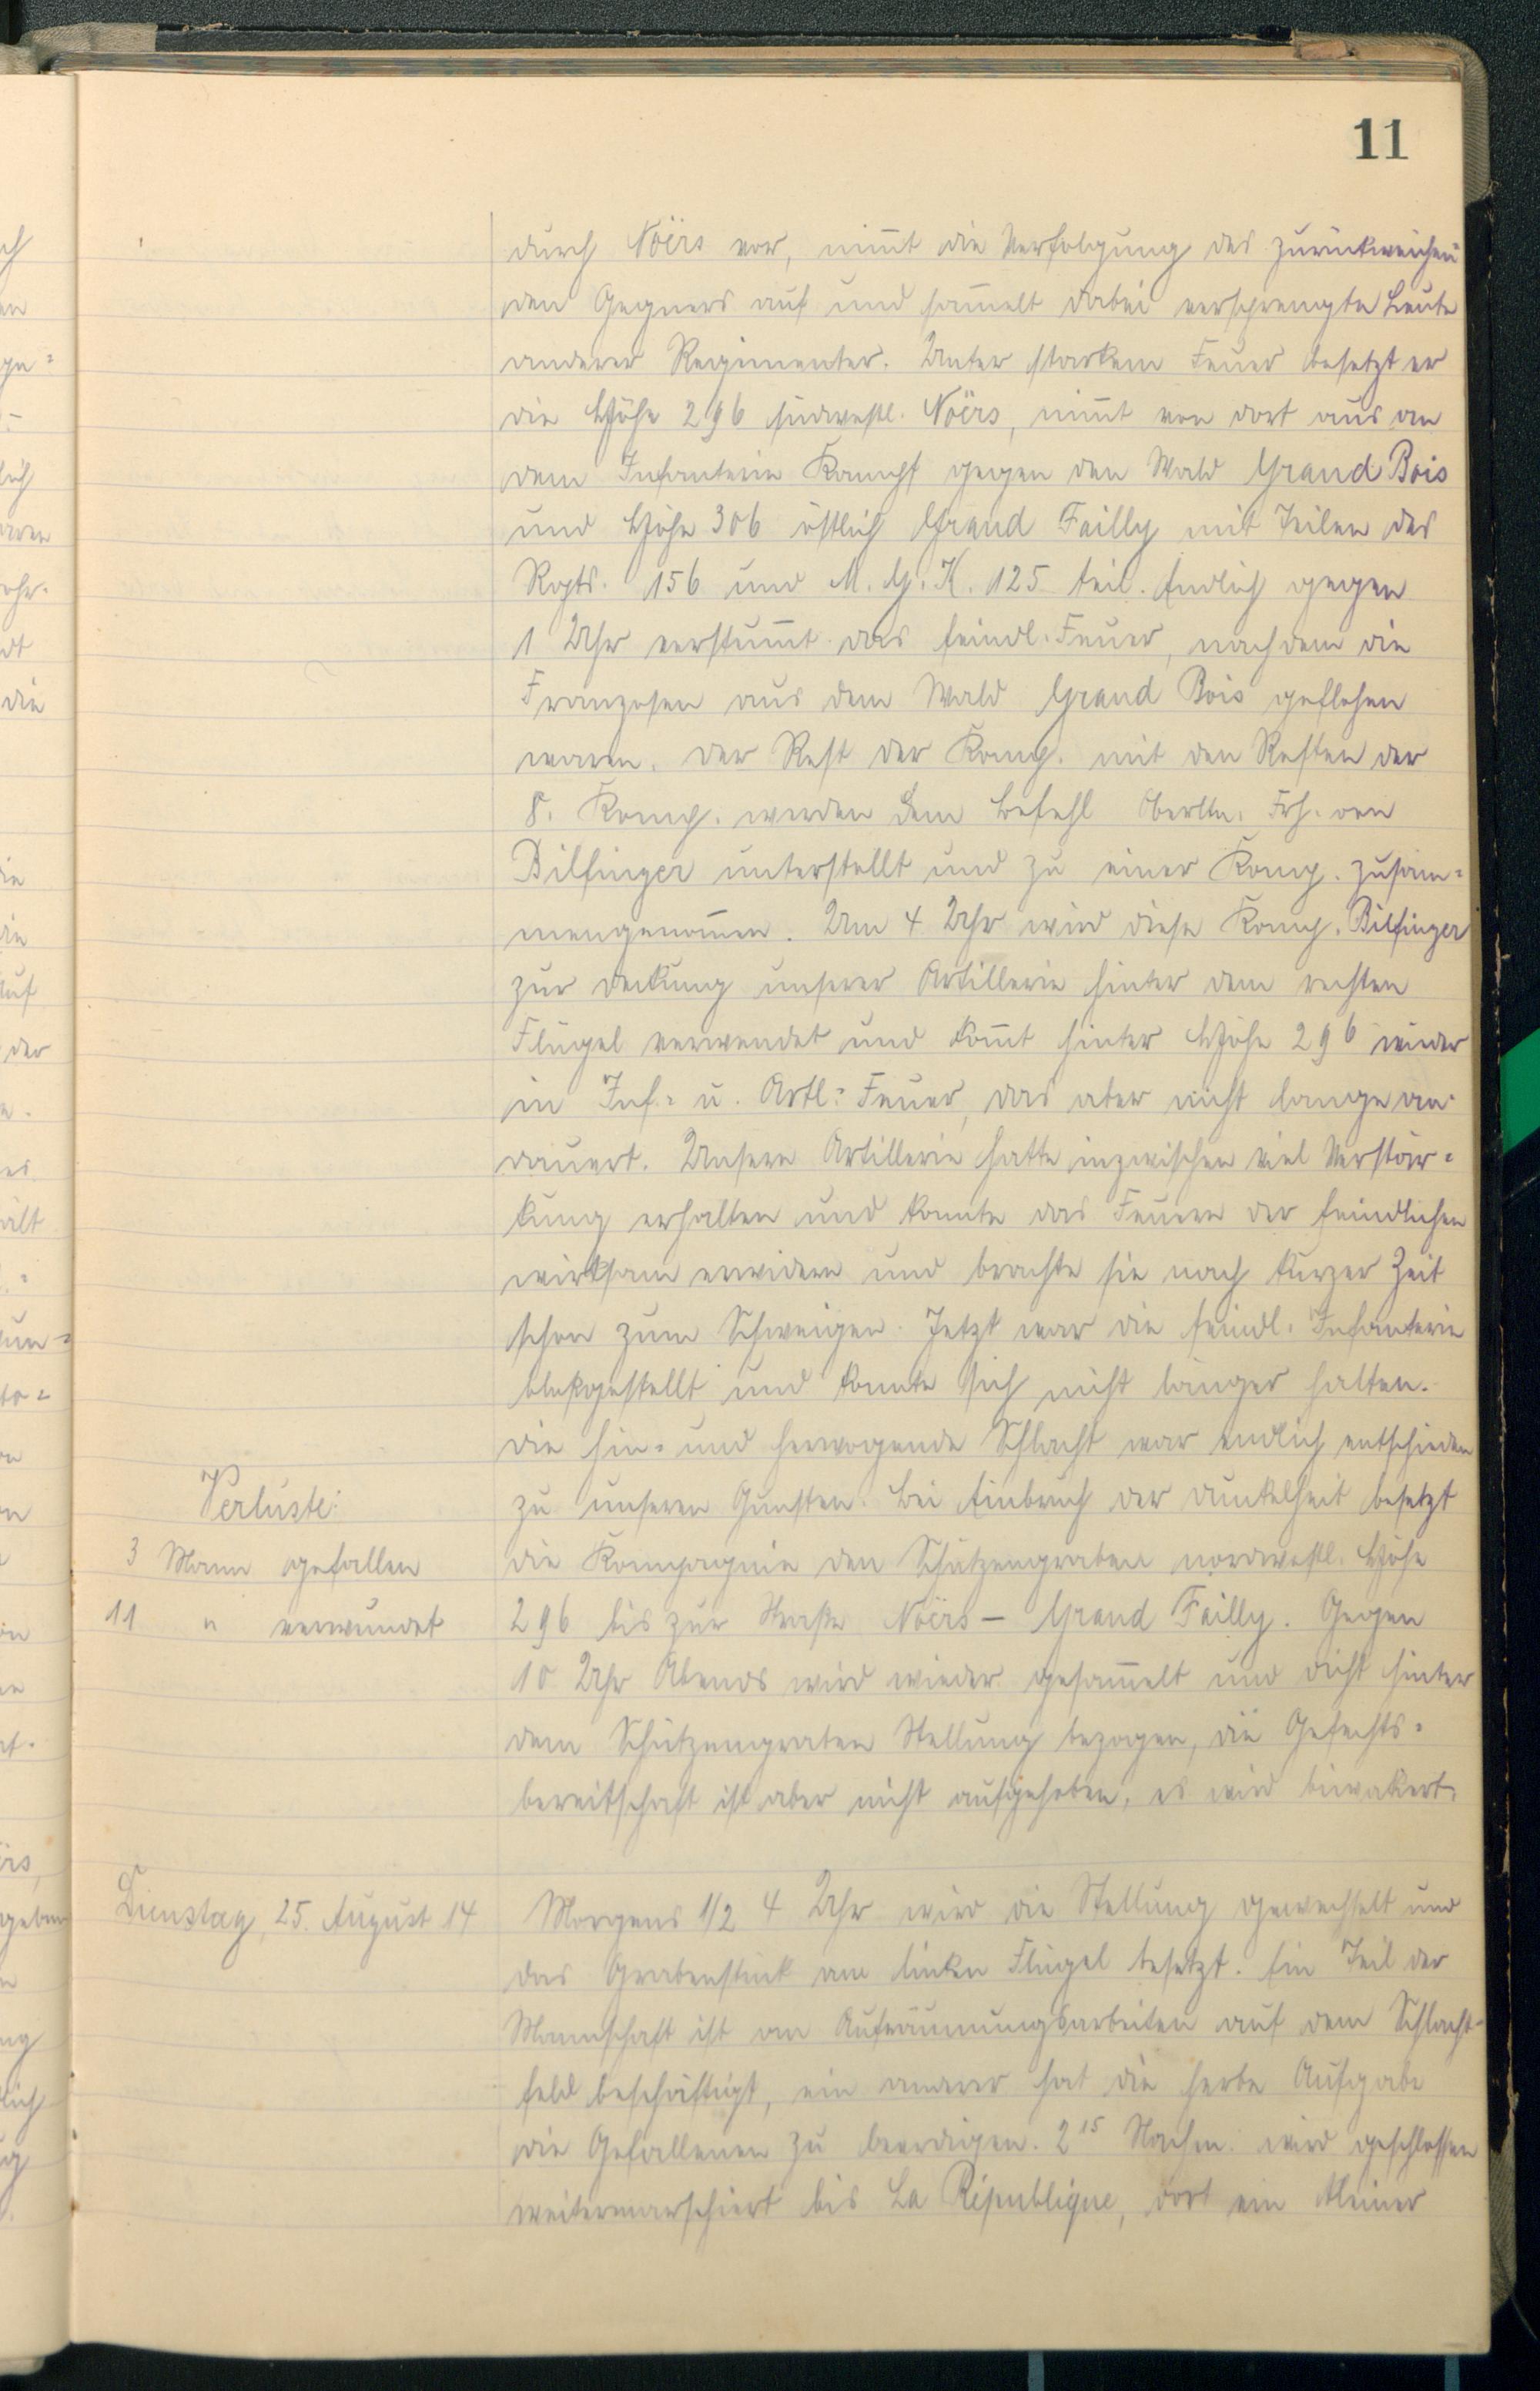 11
durch Noërs vor, nim̅t die Verfolgung des zurückweichen
den Gegners auf und sam̅elt dabei versprengte Leute
anderer Regimenter. Unter starkem Feuer besetzt er
die Höhe 296 südwestl. Noërs, nim̅t von dort aus an
dem Infanterie Kampf gegen den Wald Grand Bois
und Höhe 306 östlich Grand Failly mit Teilen des
Rgts. 156 und M. G. K. 125 teil. Endlich gegen
1 Uhr verstum̅t das feindl. Feuer, nachdem die
Franzosen aus dem Wald Grand Bois geflohen
waren. Der Rest der Komp. mit den Resten der
8. Komp. werden dem Befehl Oberltn. Frh. von
Bilfinger unterstellt und zu einer Komp. zusam=
mengenom̅en. Um 4 Uhr wird diese Komp. Bilfinger
zur Deckung unserer Artillerie hinter dem rechten
Flügel verwendet und kom̅t hinter Höhe 296 wieder
in Inf.= u. Artl.= Feuer, das aber nicht lange an
dauert. Unsere Artillerie hatte inzwischen viel Verstär=
kung erhalten und konnte das Feuern der feindlichen
wirksam erwidern und brachte sie nach kurzer Zeit
schon zum Schweigen. Jetzt war die feindl. Infanterie
blosgestellt und konnte sich nicht länger halten.
Die hin= und herwogende Schlacht war endlich entschieden
Verluste:
zu unseren Gunsten. Bei Einbruch der Dunkelheit besetzt
3 Mann gefallen
die Kompagnie den Schützengraben nordwestl. Höhe
11 " verwundet
296 bis zur Straße Noërs – Grand Failly. Gegen
10 Uhr Abends wird wieder gesam̅elt und dicht hinter
dem Schützengraben Stellung bezogen, die Gefechts=
bereitschaft ist aber nicht aufgehoben, es wird biwakiert.
Dienstag, 25. August 14
Morgens 1/2 4 Uhr wird die Stellung gewechselt und
das Grabenstück am linken Flügel besetzt. Ein Teil der
Mannschaft ist an Aufräumungsarbeiten auf dem Schlacht-
feld beschäftigt, ein anderer hat die herbe Aufgabe
die Gefallenen zu beerdigen. 2 15 Nachm. wird geschlossen
weitermarschiert bis La République, dort ein kleiner